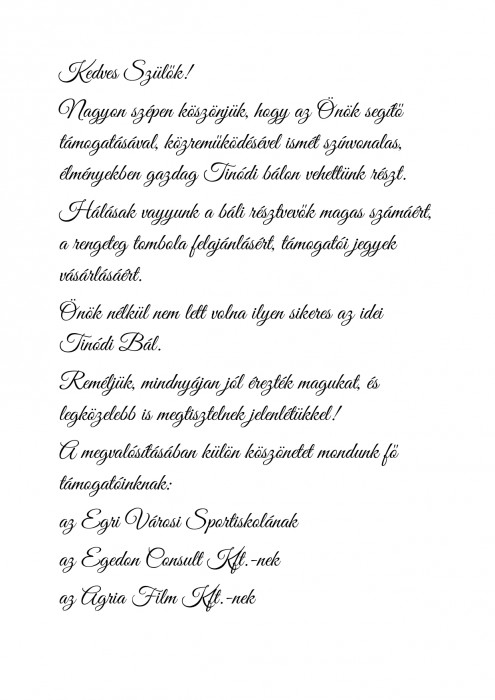 Kedves Szülők!
Nagyon szépen köszönjük, hogy az Önök segítő
támogatásával, közreműködésével ismét színvonalas,
élményekben gazdag Tinódi bálon vehettünk részt.
Hálásak vagyunk a báli résztvevők magas számáért,
a rengeteg tombola felajánlásért, támogatói jegyek
vásárlásáért.
Önök nélkül nem lett volna ilyen sikeres az idei
Tinódi Bál.
Reméljük, mindnyájan jól érezték magukat, és
legközelebb is megtisztelnek jelenlétükkel!
A megvalósításában külön köszönetet mondunk fő
támogatóinknak:
az Egri Városi Sportiskolának
az Egedon Consult Kft.-nek
az Agria Film Kft.-nek